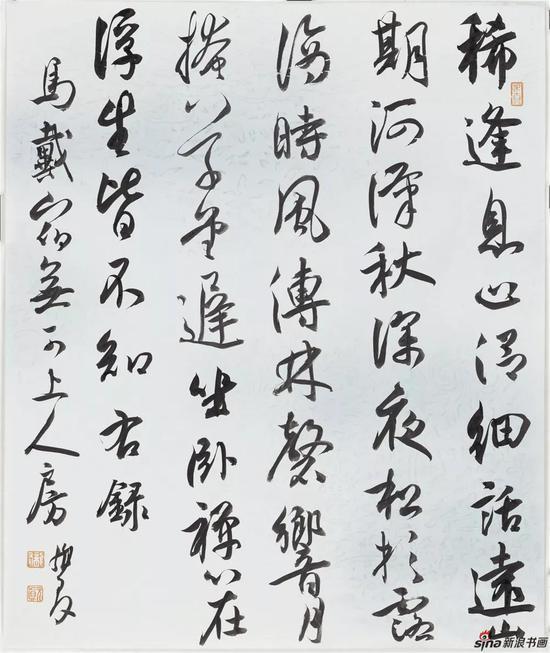 稀逢息心侶細話遠山
期河漢秋深夜松杉露
滴時風傳林磬響月
掩草堂遲坐卧禪心在
浮生皆不知右錄
馬戴宿無可上人房
sina新浪书画